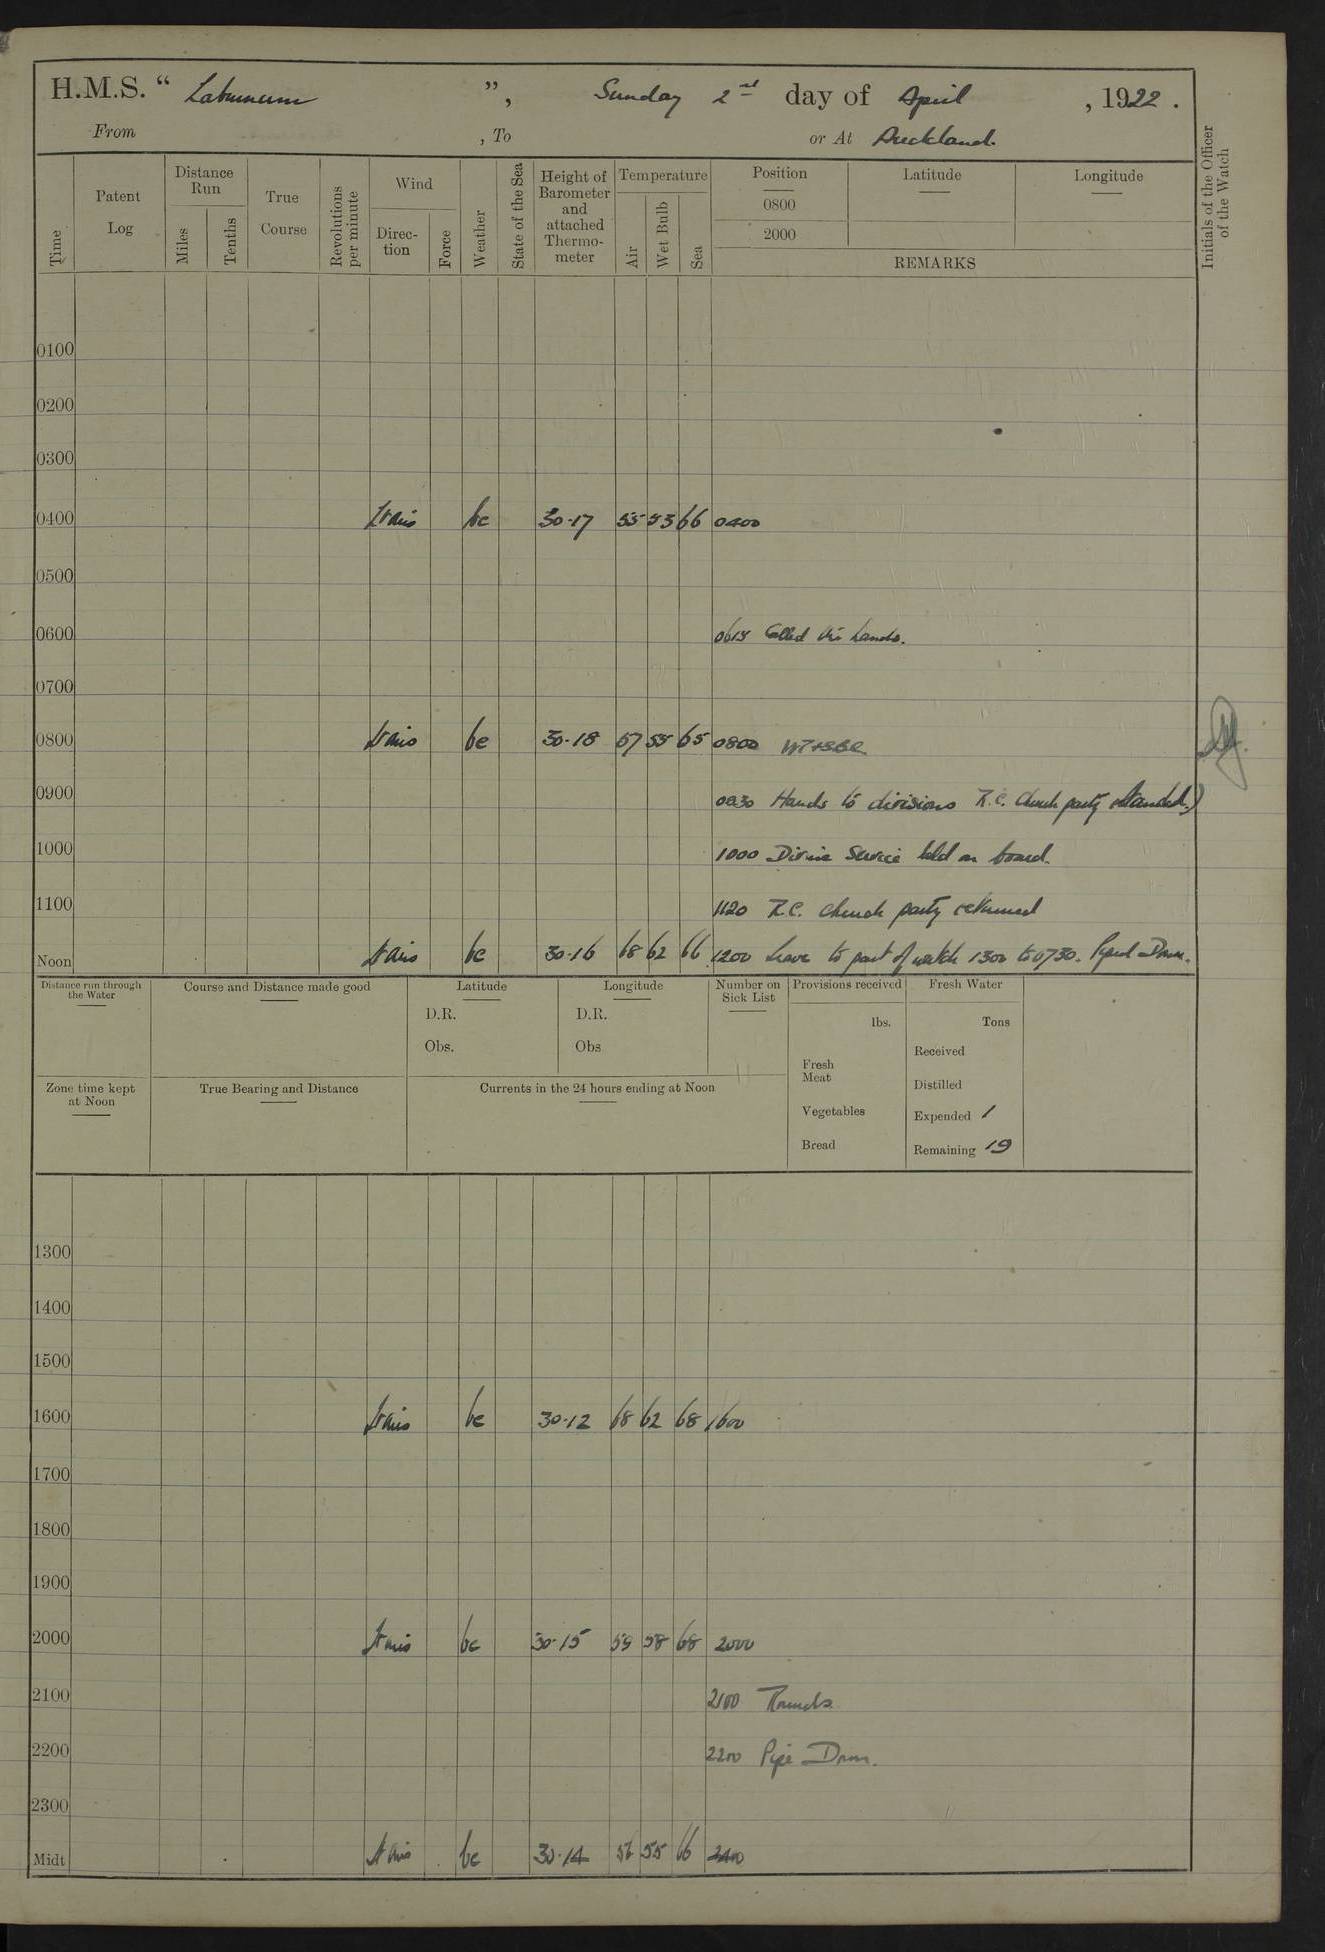 H.M.S. “ Laburnum ”, Sunday 2nd day of April , 1922 .
From , To or At Auckland.
Time Patent Log Distance Run Miles Tenths True Course Revolutions per minute Wind Direc- tion Force Weather State of the Sea Height of Barometer and attached Thermo- meter Temperature Air Wet Bulb Sea Position 0800 2000 Latitude Longitude
REMARKS
Initials of the Officer of the Watch
0100
0200
0300
0400 Lt airs bc 30·17 55 53 66 0400
0500
0600 0615 Called the hands.
0700
0800 Lt airs bc 30·18 57 55 65 0800
0900 0930 Hands to divisions R.C. Church party landed.
1000 1000 Divine Service held on board.
1100 1120 R.C. church party returned
Noon Lt airs bc 30·16 68 62 66 1200 Leave to part of watch 1300 to 0730. Piped Down.
Distance run through the Water
Course and Distance made good
Latitude D.R. Obs.
Longitude D.R. Obs
Number on Sick List
Provisions received lbs.
Fresh Meat
Vegetables
Bread
Fresh Water Tons
Received
Distilled
Expended 1
Remaining 19
Zone time kept at Noon
True Bearing and Distance
Currents in the 24 hours ending at Noon
1300
1400
1500
1600 Lt airs bc 30·12 68 62 68 1600
1700
1800
1900
2000 Lt airs bc 30·15 59 58 68 2000
2100 2100 Rounds.
2200 2200 Pipe Down.
2300
Midt Lt airs bc 30·14 56 55 66 2400